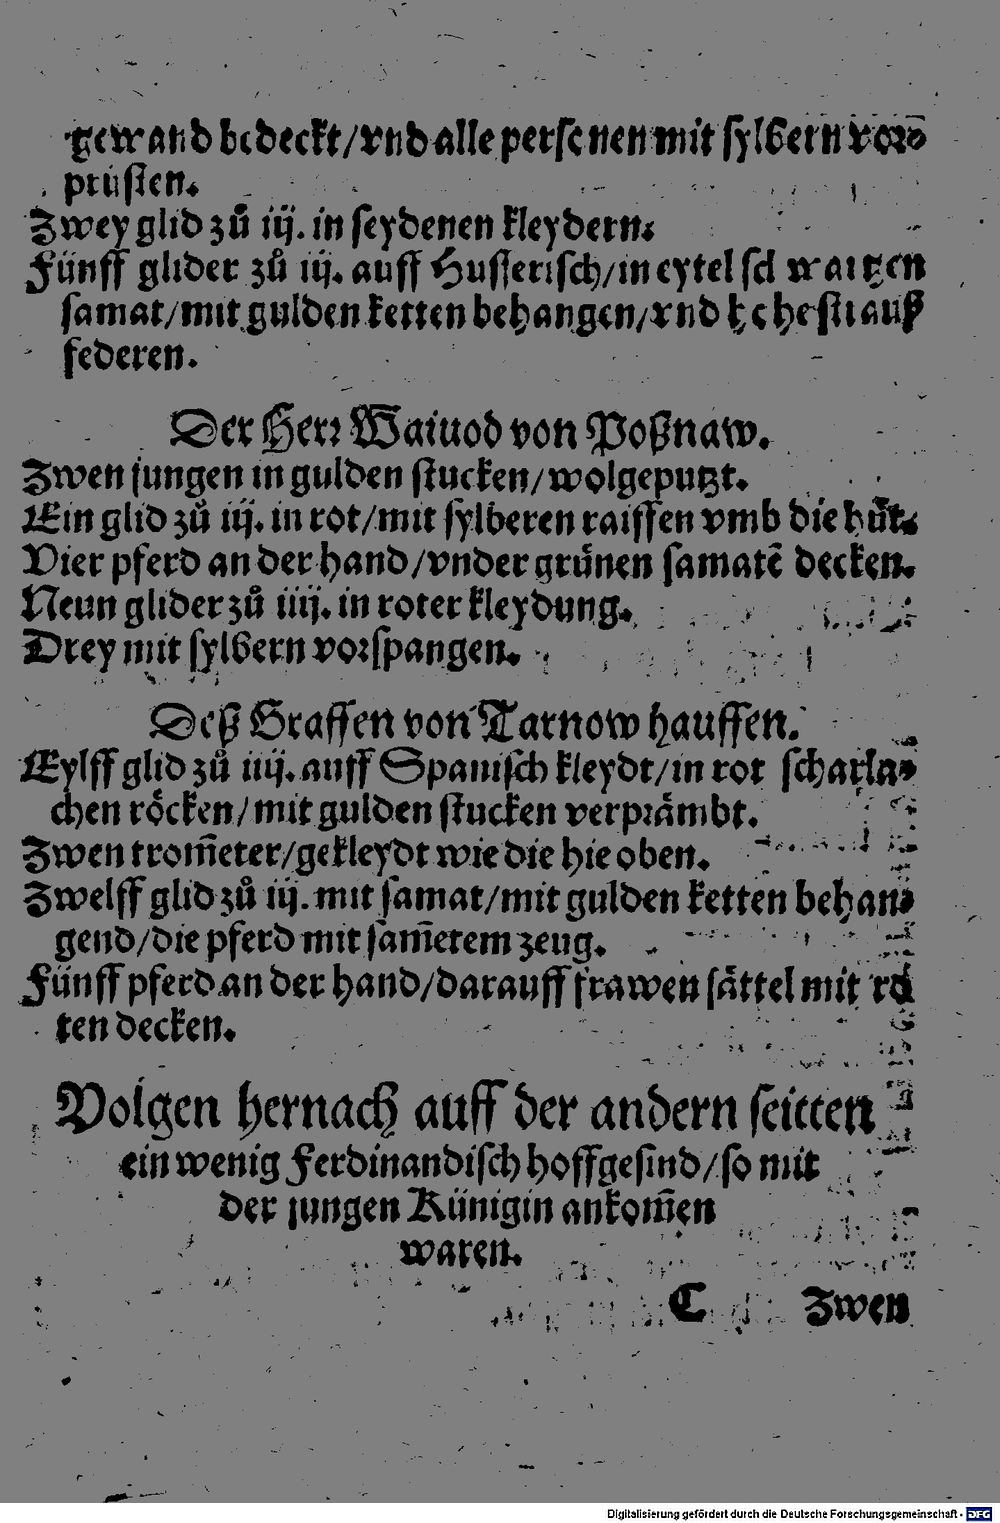 gewand bedeckt/vnd alle personen mit sylbern vor⸗
prüsten.
Zwey glid zů iij. in seydenen kleydern.
Fünff glider zů iij. auff Husserisch/in eytel schwartzen
samat/mit gulden ketten behangen/vnd auß
federen.
Der Herr Waiuod von Poßnaw.
Zwen jungen in gulden stucken/wolgeputzt.
Ein glid zů iij. in rot/mit sylberen raiffen vmb die hüt.
Vier pferd an der hand/vnder grünen samatē decken.
Neun glider zů iiij. in roter kleydung.
Drey mit sylbern vorspangen.
Deß Graffen von Tarnow hauffen.
Eylff glid zů iiij. auff Spanisch kleydt/in rot scharla⸗
chen röcken/mit gulden stucken verprämbt.
Zwen trom̄eter/gekleydt wie die hie oben.
Zwelff glid zů iij. mit samat/mit gulden ketten behan⸗
gend/die pferd mit sam̄etem zeug.
Fünff pferd an der hand/darauff frawen sättel mit ro⸗
ten decken.
Volgen hernach auff der andern seitten
ein wenig Ferdinandisch hoffgesind/so mit
der jungen Künigin ankom̄en
waren.
C Zwen
Digitalisierung gefördert durch die Deutsche Forschungsgemeinschaft - DFG